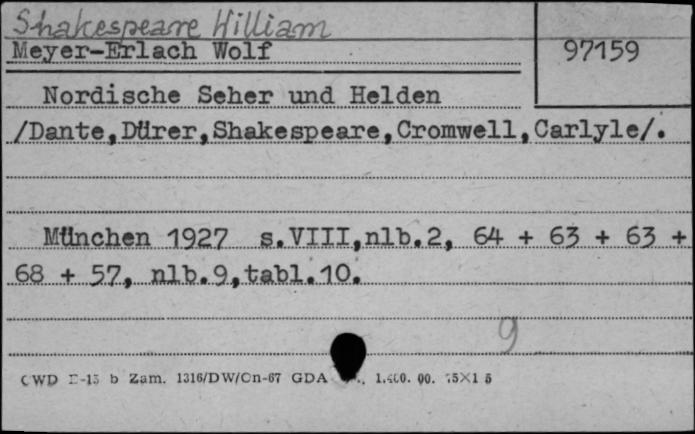 Shakespeare William
Meyer-Erlach Wolf
97159
Nordische Seher und Helden
/Dante,Dürer,Shakespeare,Cromwell,Carlyle/.
München 1927 s.VIII,nlb.2, 64 + 63 + 63 +
68 + 57, nlb.9,tabl.10.
9
CWD E-15 b Zam. 1316/DW/On-67 GDA